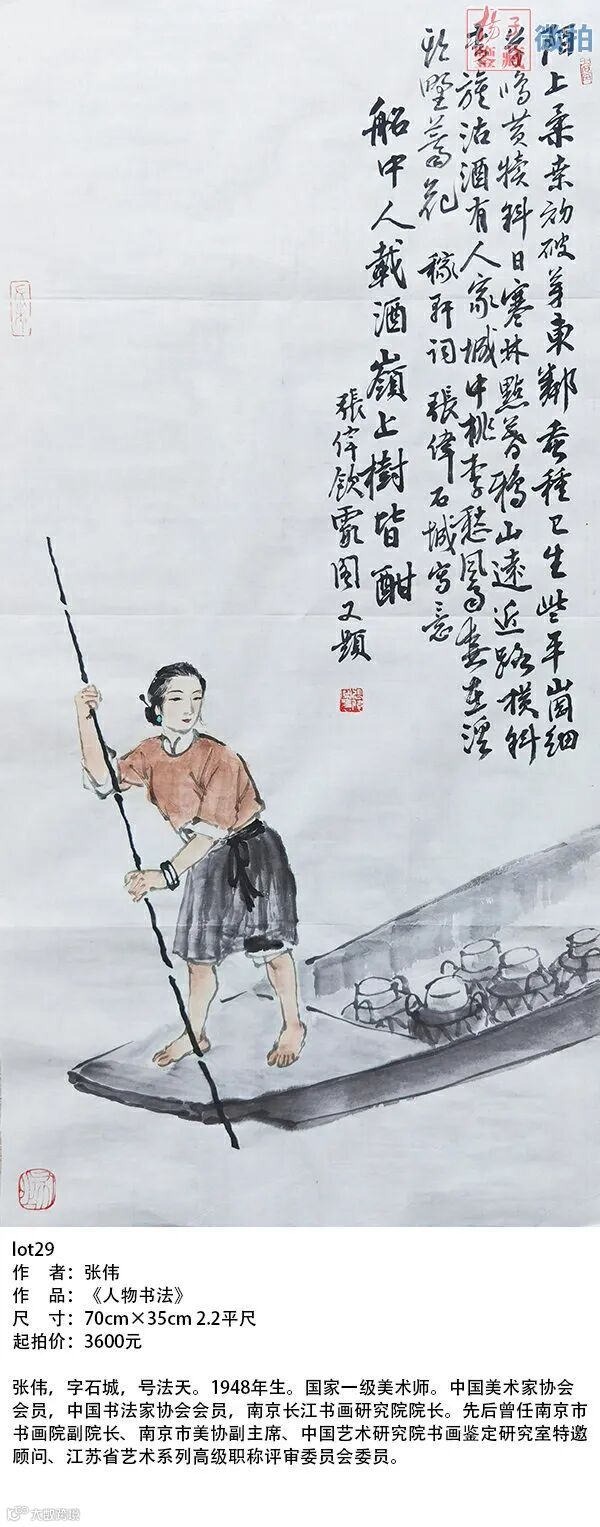 陌上柔桑初破芽東鄰蚕種已生些平崗细
草鳴黄犢斜日寒林點暮鴉山遠近路横斜
青旗沽酒有人家城中桃李愁風雨春在溪
頭野薺花 稼軒詞 張偉石城寫意
船中人載酒嶺上樹皆酣
張偉飲霞图又題
杨子鉴藏 微拍
lot29
作 者：张伟
作 品：《人物书法》
尺 寸：70cm×35cm 2.2平尺
起拍价：3600元
张伟，字石城，号法天。1948年生。国家一级美术师。中国美术家协会
会员，中国书法家协会会员，南京长江书画研究院院长。先后曾任南京市
书画院副院长、南京市美协副主席、中国艺术研究院书画鉴定研究室特邀
顾问、江苏省艺术系列高级职称评审委员会委员。
大猷跨境